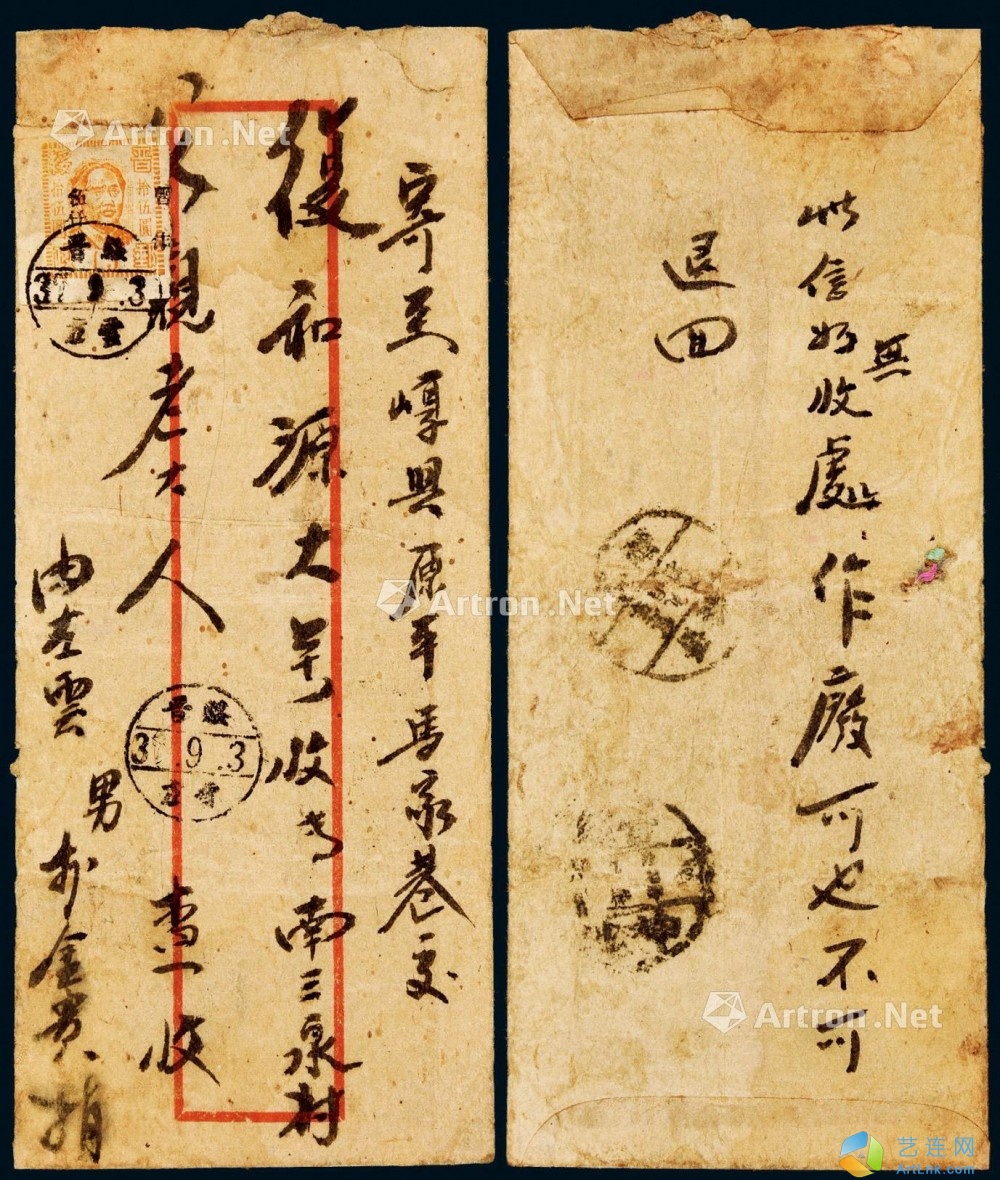 寄至崞县原平马家巷交
復和源大号收
南三泉村
父親老大人
查收
由左雲
男
金貴
晋綏
37.9.3
左雲
晋綏
37.9.3
左雲
此信如無收處作廢可也不可
退回
Artron.Net
Artron.Net
Artron.Net
Artron.Net
艺连网
ArtLnk.com